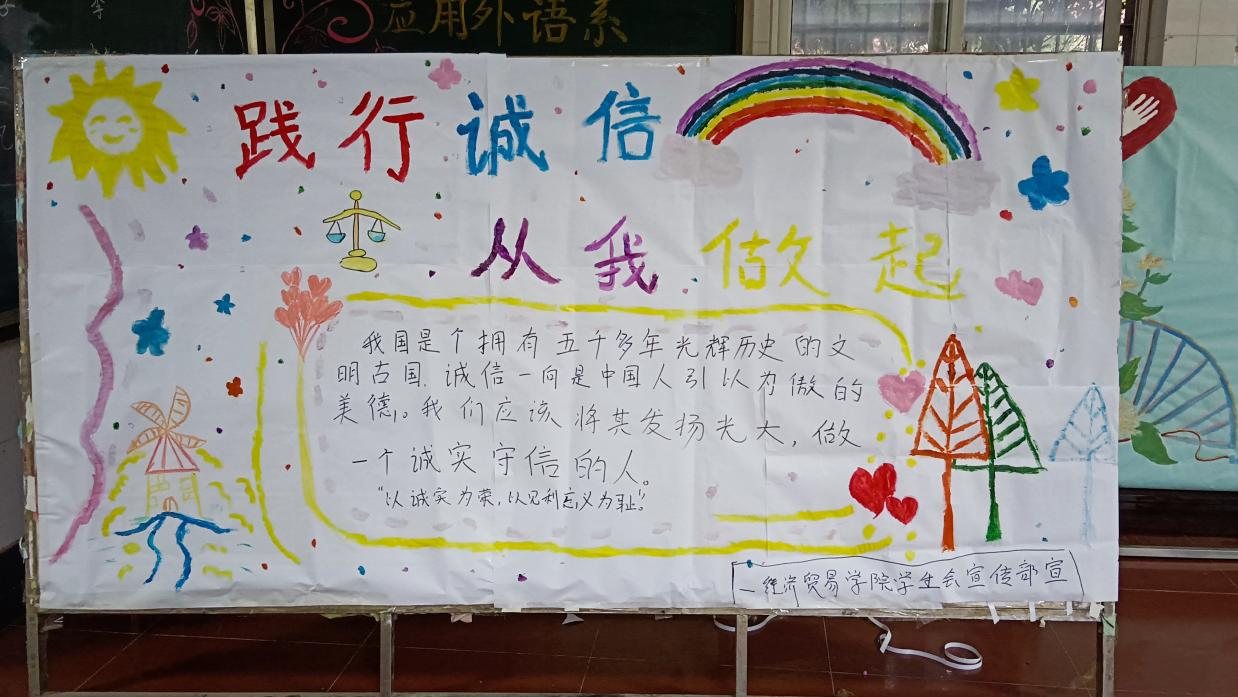 应用外语系
践行诚信
从我做起
我国是个拥有五千多年光辉历史的文
明古国.诚信一向是中国人引以为傲的
美德。我们应该将其发扬光大,做
一个诚实守信的人。
"以诚实为荣,以见利忘义为耻"。
—经济贸易学院学生会宣传部宣